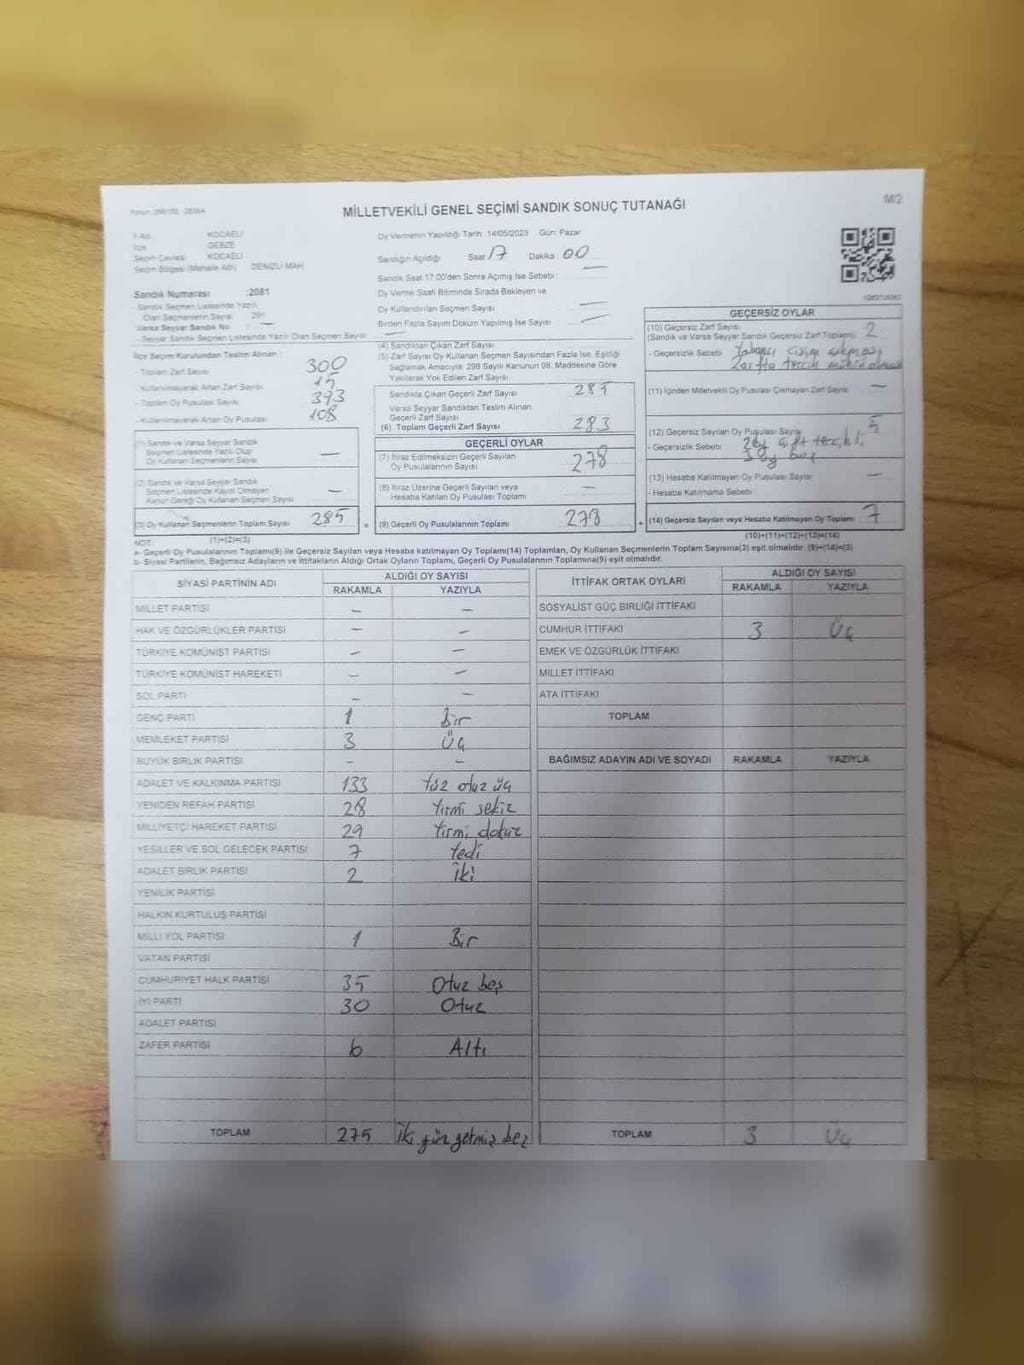 MİLLETVEKİLİ GENEL SEÇİMİ SANDIK SONUÇ TUTANAĞI
M/2
İl Adı KOCAELİ
İlçe GEBZE
Seçim Çevresi KOCAELİ
Seçim Bölgesi (Mahalle Adı) DENİZLİ MAH
Sandık Numarası :2081
- Sandık Seçmen Listesinde Yazılı
Olan Seçmenlerin Sayısı 291
Varsa Seyyar Sandık No —
- Seyyar Sandık Seçmen Listesinde Yazılı Olan Seçmen Sayısı
İlçe Seçim Kurulundan Teslim Alınan
- Toplam Zarf Sayısı 300
- Kullanılmayarak Artan Zarf Sayısı 15
- Toplam Oy Pusulası Sayısı 393
- Kullanılmayarak Artan Oy Pusulası 108
(1) Sandık ve Varsa Seyyar Sandık
Seçmen Listesinde Yazılı Olup
Oy Kullanan Seçmenlerin Sayısı —
(2) Sandık ve Varsa Seyyar Sandık
Seçmen Listesinde Kayıtlı Olmayan
Kanun Gereği Oy Kullanan Seçmen Sayısı —
(3) Oy Kullanan Seçmenlerin Toplam Sayısı 285
(1)+(2)=(3)
Oy Vermenin Yapıldığı Tarih :14/05/2023 Gün: Pazar
Sandığın Açıldığı Saat 17 Dakika 00
Sandık Saat 17.00'den Sonra Açılmış İse Sebebi : —
Oy Verme Saati Bitiminde Sırada Bekleyen ve
Oy Kullandırılan Seçmen Sayısı —
Birden Fazla Sayım Döküm Yapılmış İse Sayısı —
(4) Sandıktan Çıkan Zarf Sayısı
(5) Zarf Sayısı Oy Kullanan Seçmen Sayısından Fazla İse, Eşitliği
Sağlamak Amacıyla; 298 Sayılı Kanunun 98. Maddesine Göre
Yakılarak Yok Edilen Zarf Sayısı
Sandıkta Çıkan Geçerli Zarf Sayısı 285
Varsa Seyyar Sandıktan Teslim Alınan
Geçerli Zarf Sayısı
(6) Toplam Geçerli Zarf Sayısı 283
GEÇERLİ OYLAR
(7) İtiraz Edilmeksizin Geçerli Sayılan
Oy Pusulalarının Sayısı 278
(8) İtiraz Üzerine Geçerli Sayılan veya
Hesaba Katılan Oy Pusulası Toplamı —
(9) Geçerli Oy Pusulalarının Toplamı 278
GEÇERSİZ OYLAR
(10) Geçersiz Zarf Sayısı
(Sandık ve Varsa Seyyar Sandık Geçersiz Zarf Toplamı) 2
- Geçersizlik Sebebi Yabancı cisim
Zarfta tercih
(11) İçinden Milletvekili Oy Pusulası Çıkmayan Zarf Sayısı —
(12) Geçersiz Sayılan Oy Pusulası Sayısı 5
- Geçersizlik Sebebi 2 oy çift tercihli
3 oy boş
(13) Hesaba Katılmayan Oy Pusulası Sayısı —
- Hesaba Katılmama Sebebi
(14) Geçersiz Sayılan veya Hesaba Katılmayan Oy Toplamı 7
(10)+(11)+(12)+(13)=(14)
NOT:
a- Geçerli Oy Pusulaları Toplamı(9) ile Geçersiz Sayılan veya Hesaba katılmayan Oy Toplamı(14) Toplamları, Oy Kullanan Seçmenlerin Toplam Sayısına(3) eşit olmalıdır. (9)+(14)=(3)
b- Siyasi Partilerin, Bağımsız Adayların ve İttifakların Aldığı Ortak Oyların Toplamı, Geçerli Oy Pusulalarının Toplamına(9) eşit olmalıdır.
SİYASİ PARTİNİN ADI ALDIĞI OY SAYISI
RAKAMLA YAZIYLA
MİLLET PARTİSİ — —
HAK VE ÖZGÜRLÜKLER PARTİSİ — —
TÜRKİYE KOMÜNİST PARTİSİ — —
TÜRKİYE KOMÜNİST HAREKETİ — —
SOL PARTİ — —
GENÇ PARTİ 1 Bir
MEMLEKET PARTİSİ 3 Üç
BÜYÜK BİRLİK PARTİSİ - -
ADALET VE KALKINMA PARTİSİ 133 Yüz otuz üç
YENİDEN REFAH PARTİSİ 28 Yirmi sekiz
MİLLİYETÇİ HAREKET PARTİSİ 29 Yirmi dokuz
YEŞİLLER VE SOL GELECEK PARTİSİ 7 Yedi
ADALET BİRLİK PARTİSİ 2 İki
YENİLİK PARTİSİ
HALKIN KURTULUŞ PARTİSİ
MİLLİ YOL PARTİSİ 1 Bir
VATAN PARTİSİ
CUMHURİYET HALK PARTİSİ 35 Otuz beş
İYİ PARTİ 30 Otuz
ADALET PARTİSİ
ZAFER PARTİSİ 6 Altı
TOPLAM 275 İki yüz yetmiş beş
İTTİFAK ORTAK OYLARI ALDIĞI OY SAYISI
RAKAMLA YAZIYLA
SOSYALİST GÜÇ BİRLİĞİ İTTİFAKI
CUMHUR İTTİFAKI 3 Üç
EMEK VE ÖZGÜRLÜK İTTİFAKI
MİLLET İTTİFAKI
ATA İTTİFAKI
TOPLAM
BAĞIMSIZ ADAYIN ADI VE SOYADI RAKAMLA YAZIYLA
TOPLAM 3 Üç